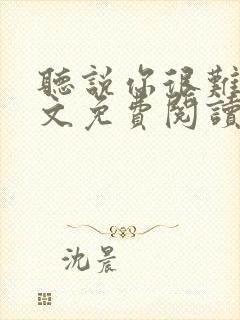 聽說你很難
文免費閱讀
沈晨